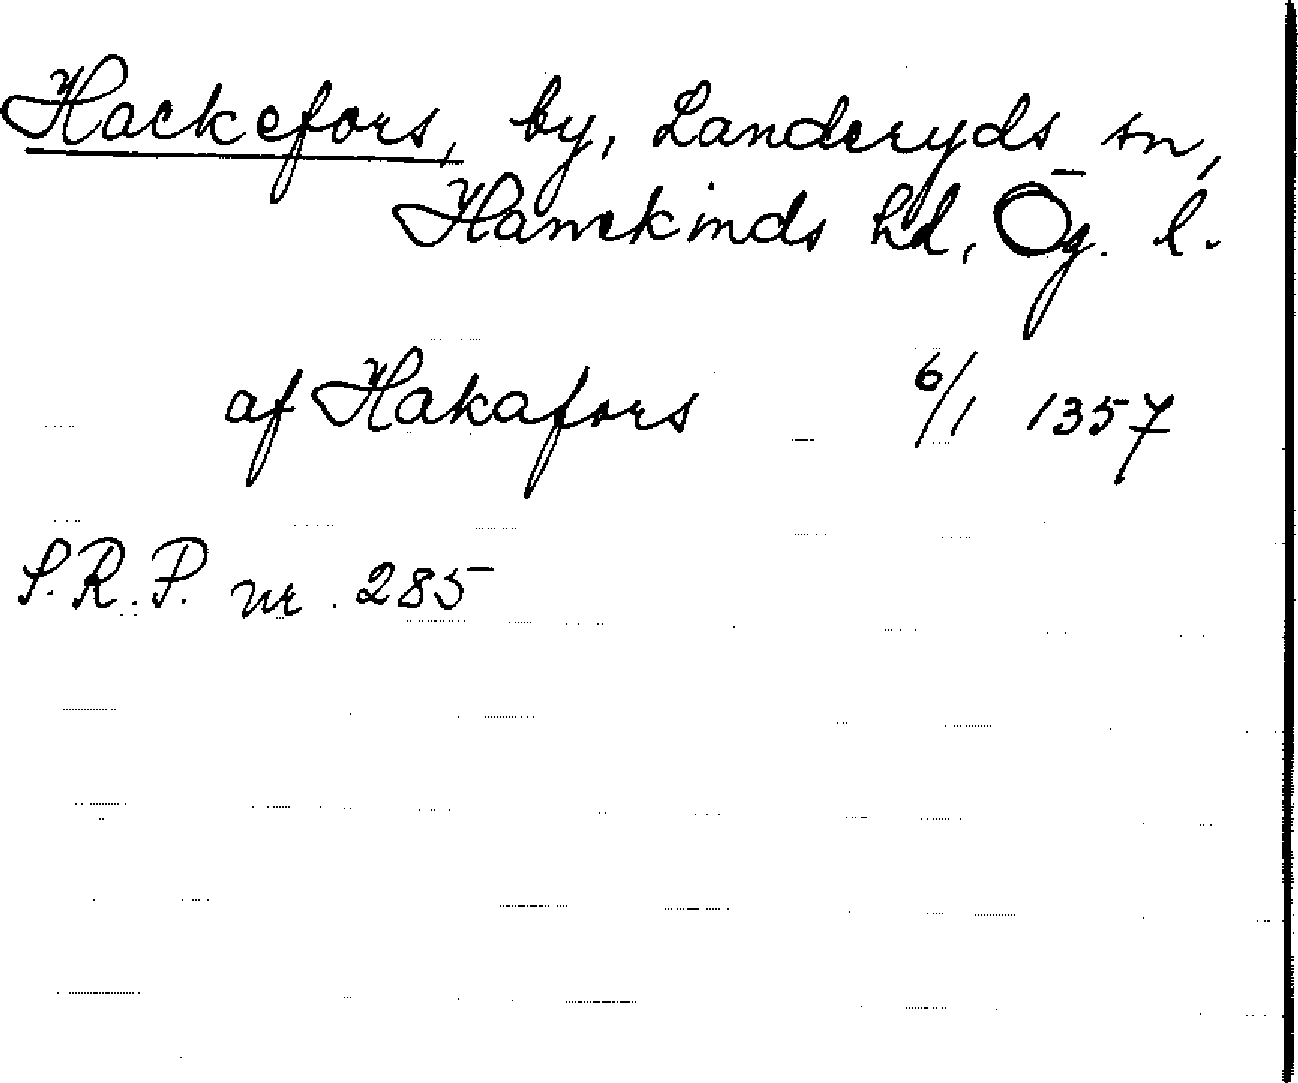 Hackefors, by, Landeryds sn,
Hanekinds hd, Ög. l.
af Hakafors 6/1 1357
S.R.P. nr. 285